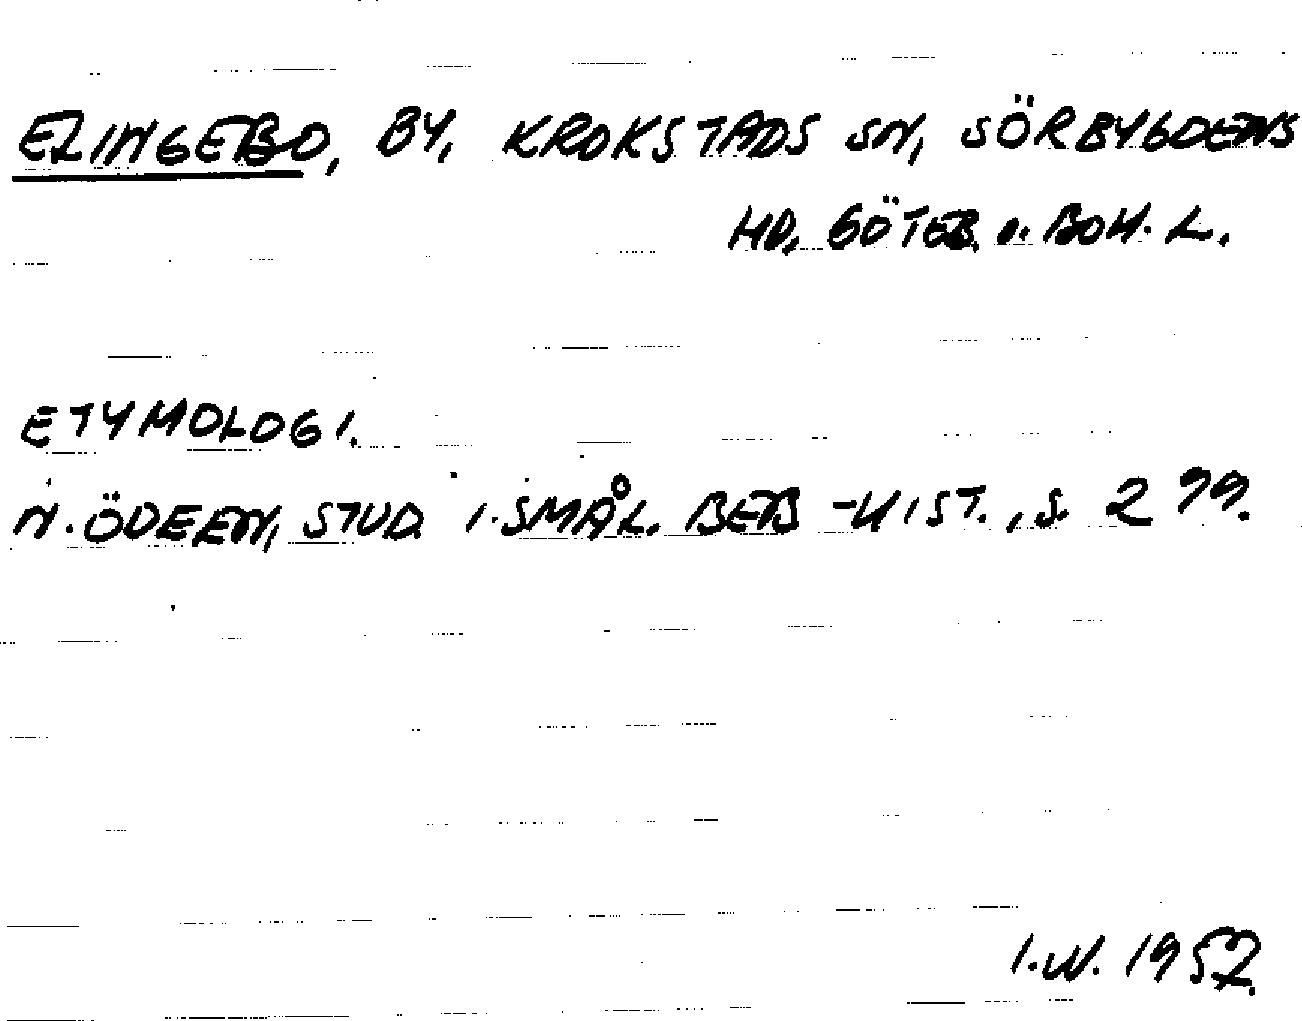 ELINGEBO, BY, KROKSTADS SN, SÖRBYGDENS
HD, GÖTEB. O. BOH. L.
ETYMOLOGI.
N. ÖDEEN, STUD. I SMÅL. BEB-HIST., S. 299.
I.W. 1957.